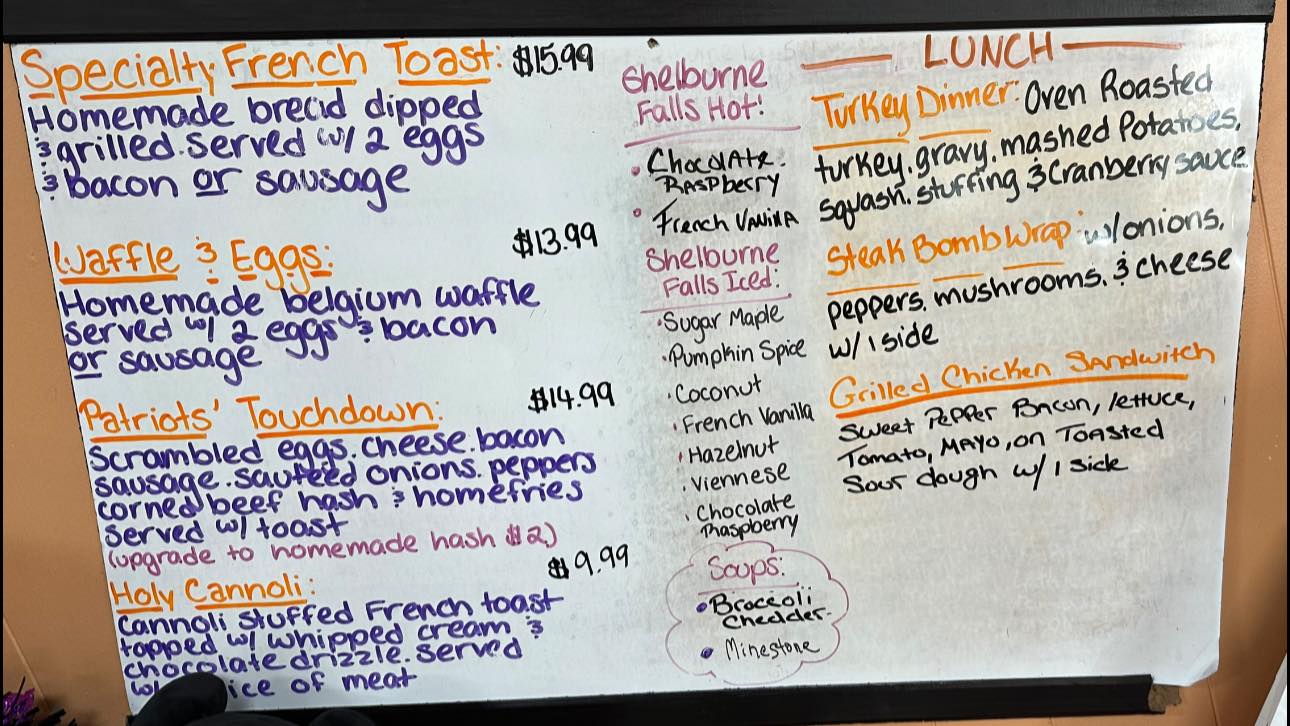 Specialty French Toast: $15.99
Homemade bread dipped
& grilled. Served w/ 2 eggs
& bacon or sausage
Waffle & Eggs: $13.99
Homemade belgium waffle
served w/ 2 eggs & bacon
or sausage
Patriots' Touchdown: $14.99
Scrambled eggs. cheese. bacon
sausage. sauteed onions. peppers
corned beef hash & homefries
served w/ toast
(upgrade to homemade hash $2)
Holy Cannoli: $9.99
Cannoli stuffed French toast
topped w/ whipped cream &
chocolate drizzle. Served
of meat
Shelburne
Falls Hot!
• Chocolate
Raspberry
• French Vanilla
Shelburne
Falls Iced:
• Sugar Maple
• Pumpkin Spice
• Coconut
• French Vanilla
• Hazelnut
• Viennese
• Chocolate
Raspberry
Soups:
• Broccoli
Chedder
• Minestone
LUNCH
Turkey Dinner: Oven Roasted
turkey, gravy, mashed Potatoes,
squash, stuffing & Cranberry sauce
Steak Bomb Wrap: w/ onions,
peppers, mushrooms, & cheese
w/ 1 side
Grilled Chicken Sandwitch
Sweet Pepper Bacon, lettuce,
Tomato, Mayo, on Toasted
Sour dough w/ 1 side